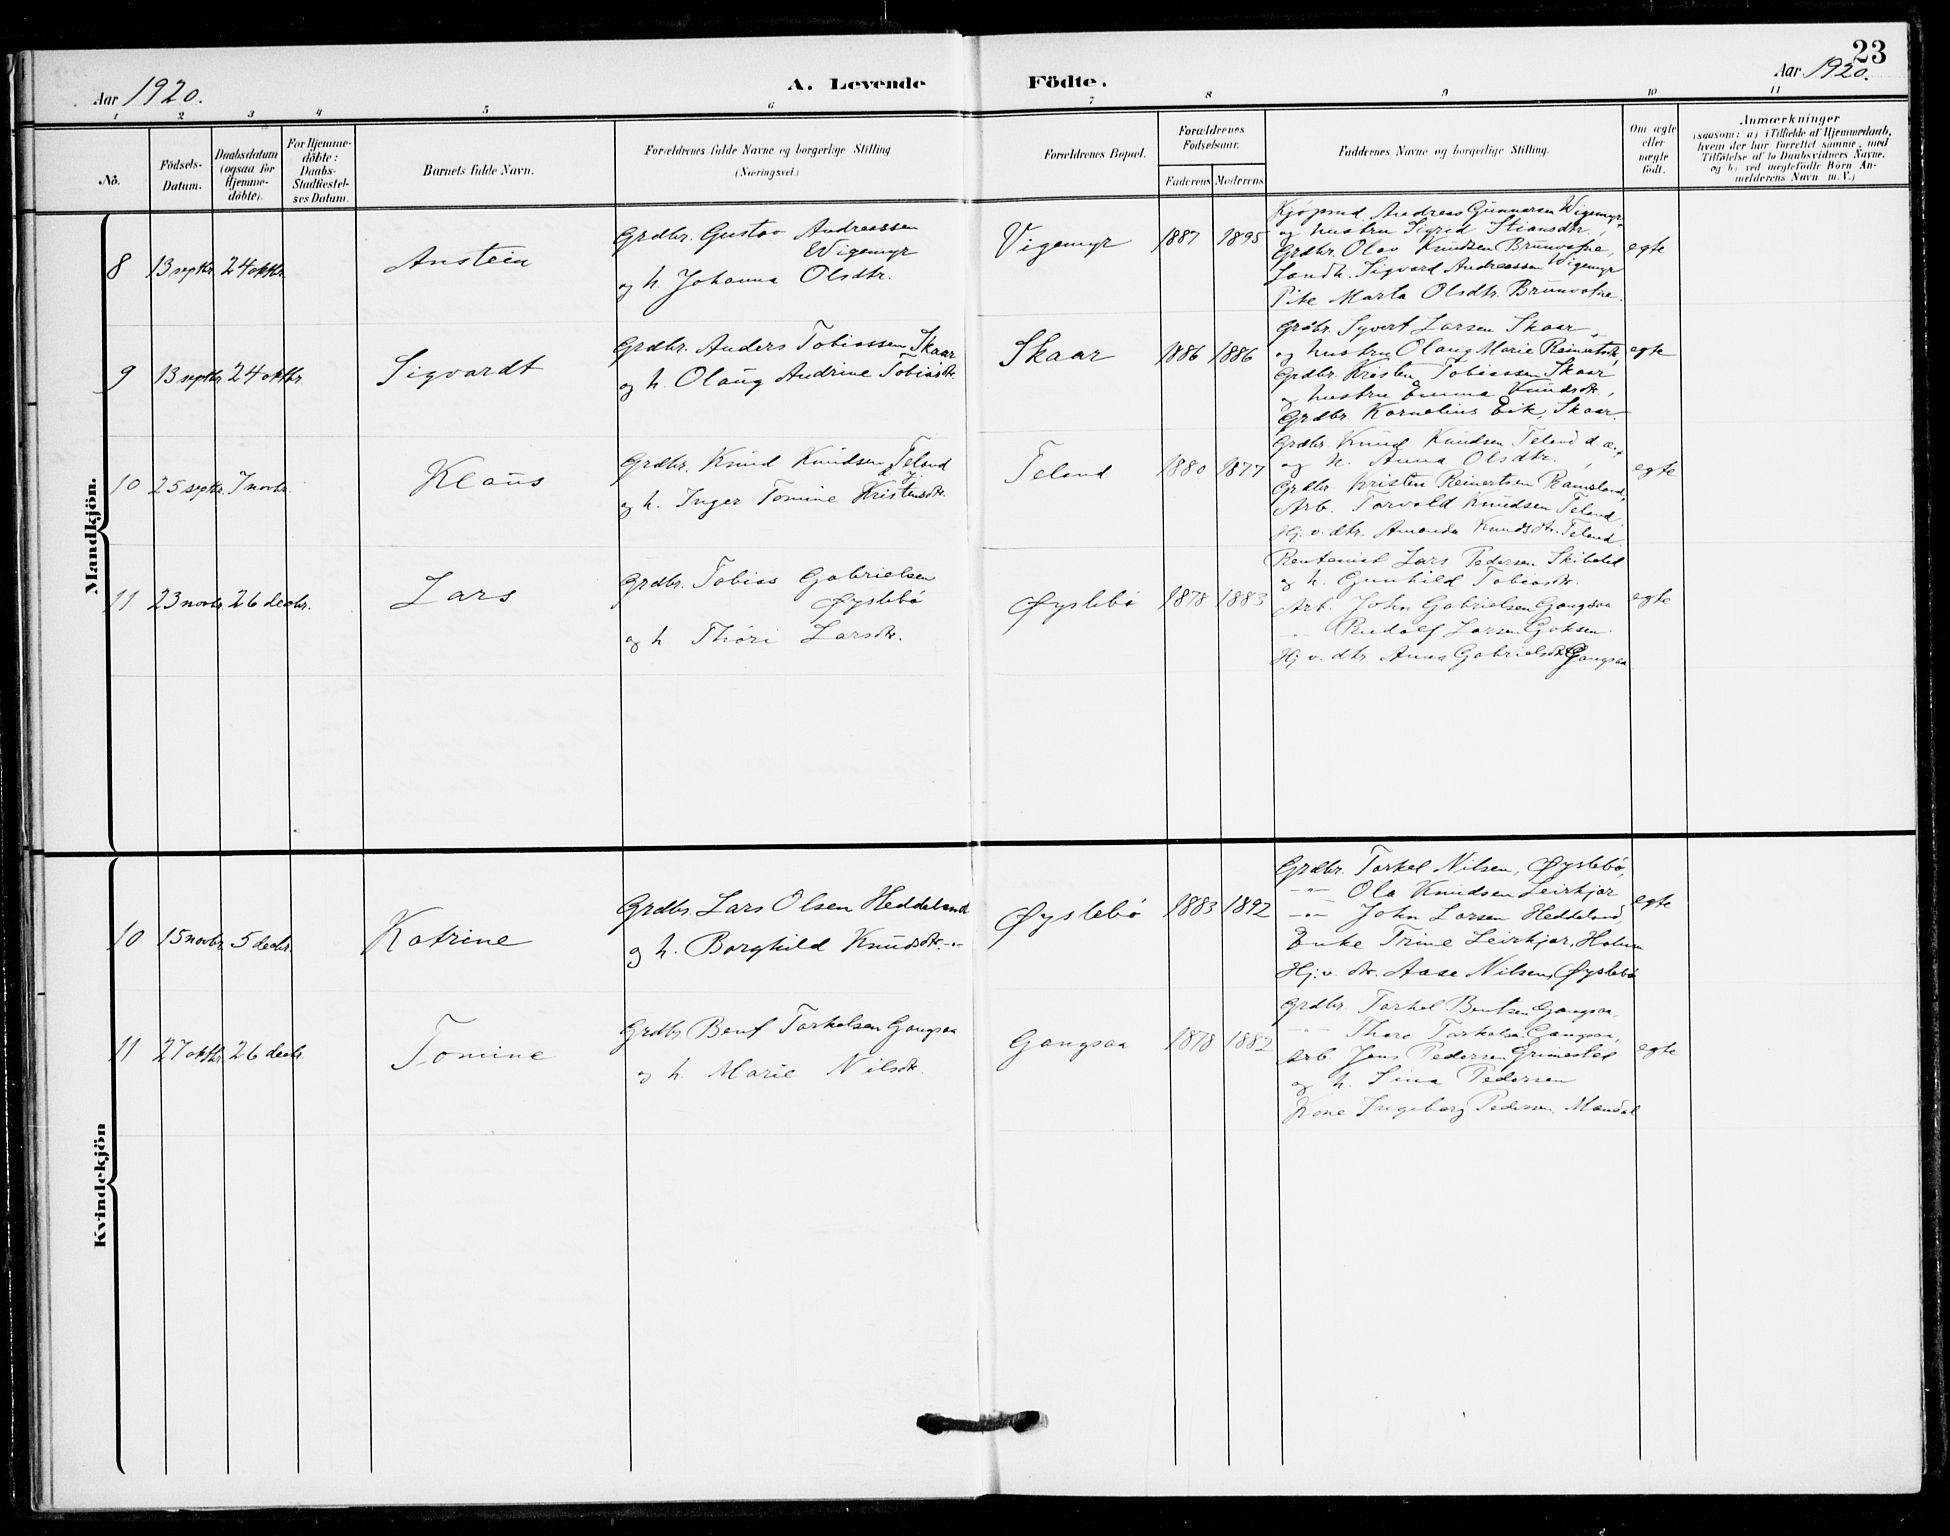 23
Aar 1920.
A. Levende
Födte.
Aar 1920.
1 2 3 4 5 6 7 8 9 10 11
No.
Födsels-
Datum.
Daabsdatum
(ogsaa for
Hjemme-
döbte).
For Hjemme-
döbte:
Daabs-
Stadfæstel-
ses Datum.
Barnets fulde Navn.
Forældrenes fulde Navne og borgerlige Stilling
(Næringsvei.)
Forældrenes Bopæl.
Forældrenes
Födselsaar.
Faderens Moderens
Faddernes Navne og borgerlige Stilling.
Om ægte
eller
uægte
födt.
Anmærkninger
(saasom: a) i Tilfælde af Hjemmedaab,
hvem der har forrettet samme, med
Tilföielse af to Daabsvidners Navne.
og b) ved uægtefödte Börn An-
melderens Navn m. V.)
Mandkjön.
8 13 septbr. 24 oktbr.
Anstein
Grdbr. Gustav Andreassen
Wigemyr
og h. Johanna Olsdtr.
Vigemyr
1887 1895
Kjøpmd. Andreas Gunnarsen Wigemyr
og hustru Sigrid Stiansdtr.,
Grdbr. Olav Knudsen Brunvatne,
Landh. Sigvard Andreassen Wigemyr
Pike Marta Olsdtr. Brunvatne.
egte
9 13 septbr. 24 oktbr.
Sigvardt
Grdbr. Anders Tobiassen Skaar
og h. Olaug Andrine Tobiasdtr.
Skaar
1886 1886
Grdbr. Syvert Larsen Skaar
og hustru Olaug Marie Reinertsdtr,
Grdbr. Kristen Tobiassen Skaar
og hustru Emma Knudsdtr.,
Grdbr. Kornelius Eik, Skaar.
egte
10 25 septbr. 7 novbr.
Klaus
Grdbr. Knud Knudsen Teland
d. y.
og h. Inger Tomine Kristensdtr.
Teland
1880 1877
Grdbr. Knud Knudsen Teland d. æ.
og h. Anna Olsdtr.,
Grdbr. Kristen Reinertsen Ramsland,
Arb. Torvald Knudsen Teland,
Hj. v. dtr. Amanda Knudsdtr. Teland.
egte
11 23 novbr. 26 decbr.
Lars
Grdbr. Tobias Gabrielsen
Øyslebø
og h Thori Larsdtr.
Øyslebø
1878 1883
Rentenist Lars Pedersen Skibsted
og h. Gunhild Tobiasdtr.
Arb. John Gabrielsen Gangsaa
-"- Rudolf Larsen Goksem.
Hj. v. dtr Anna Gabrielsdtr Gangsaa
egte
Kvindekjön
10 15 novbr. 5 decbr.
Katrine
Grdbr. Lars Olsen Heddeland
og h. Borghild Knudsdtr. -"-
Øyslebø
1883 1892
Grdbr. Torkel Nilsen, Øyslebø,
-"- Ola Knudsen Leirkjær,
-"- John Larsen Heddeland,
Enke Trine Leirkjær, Holum
Hj. v. dtr. Aase Nilsen, Øyslebø
egte
11 27 oktbr. 26 decbr.
Tomine
Grdbr. Bent Torkelsen Gangsaa
og h. Marie Nilsdtr.
Gangsaa
1878 1882
Grdbr. Torkel Bentsen Gangsaa,
-"- Thore Torkelsen Gangsaa,
Arb. Jens Pedersen Grimestad
og h. Sina Pedersen
Kone Ingeborg Pedersen, Mandal
egte